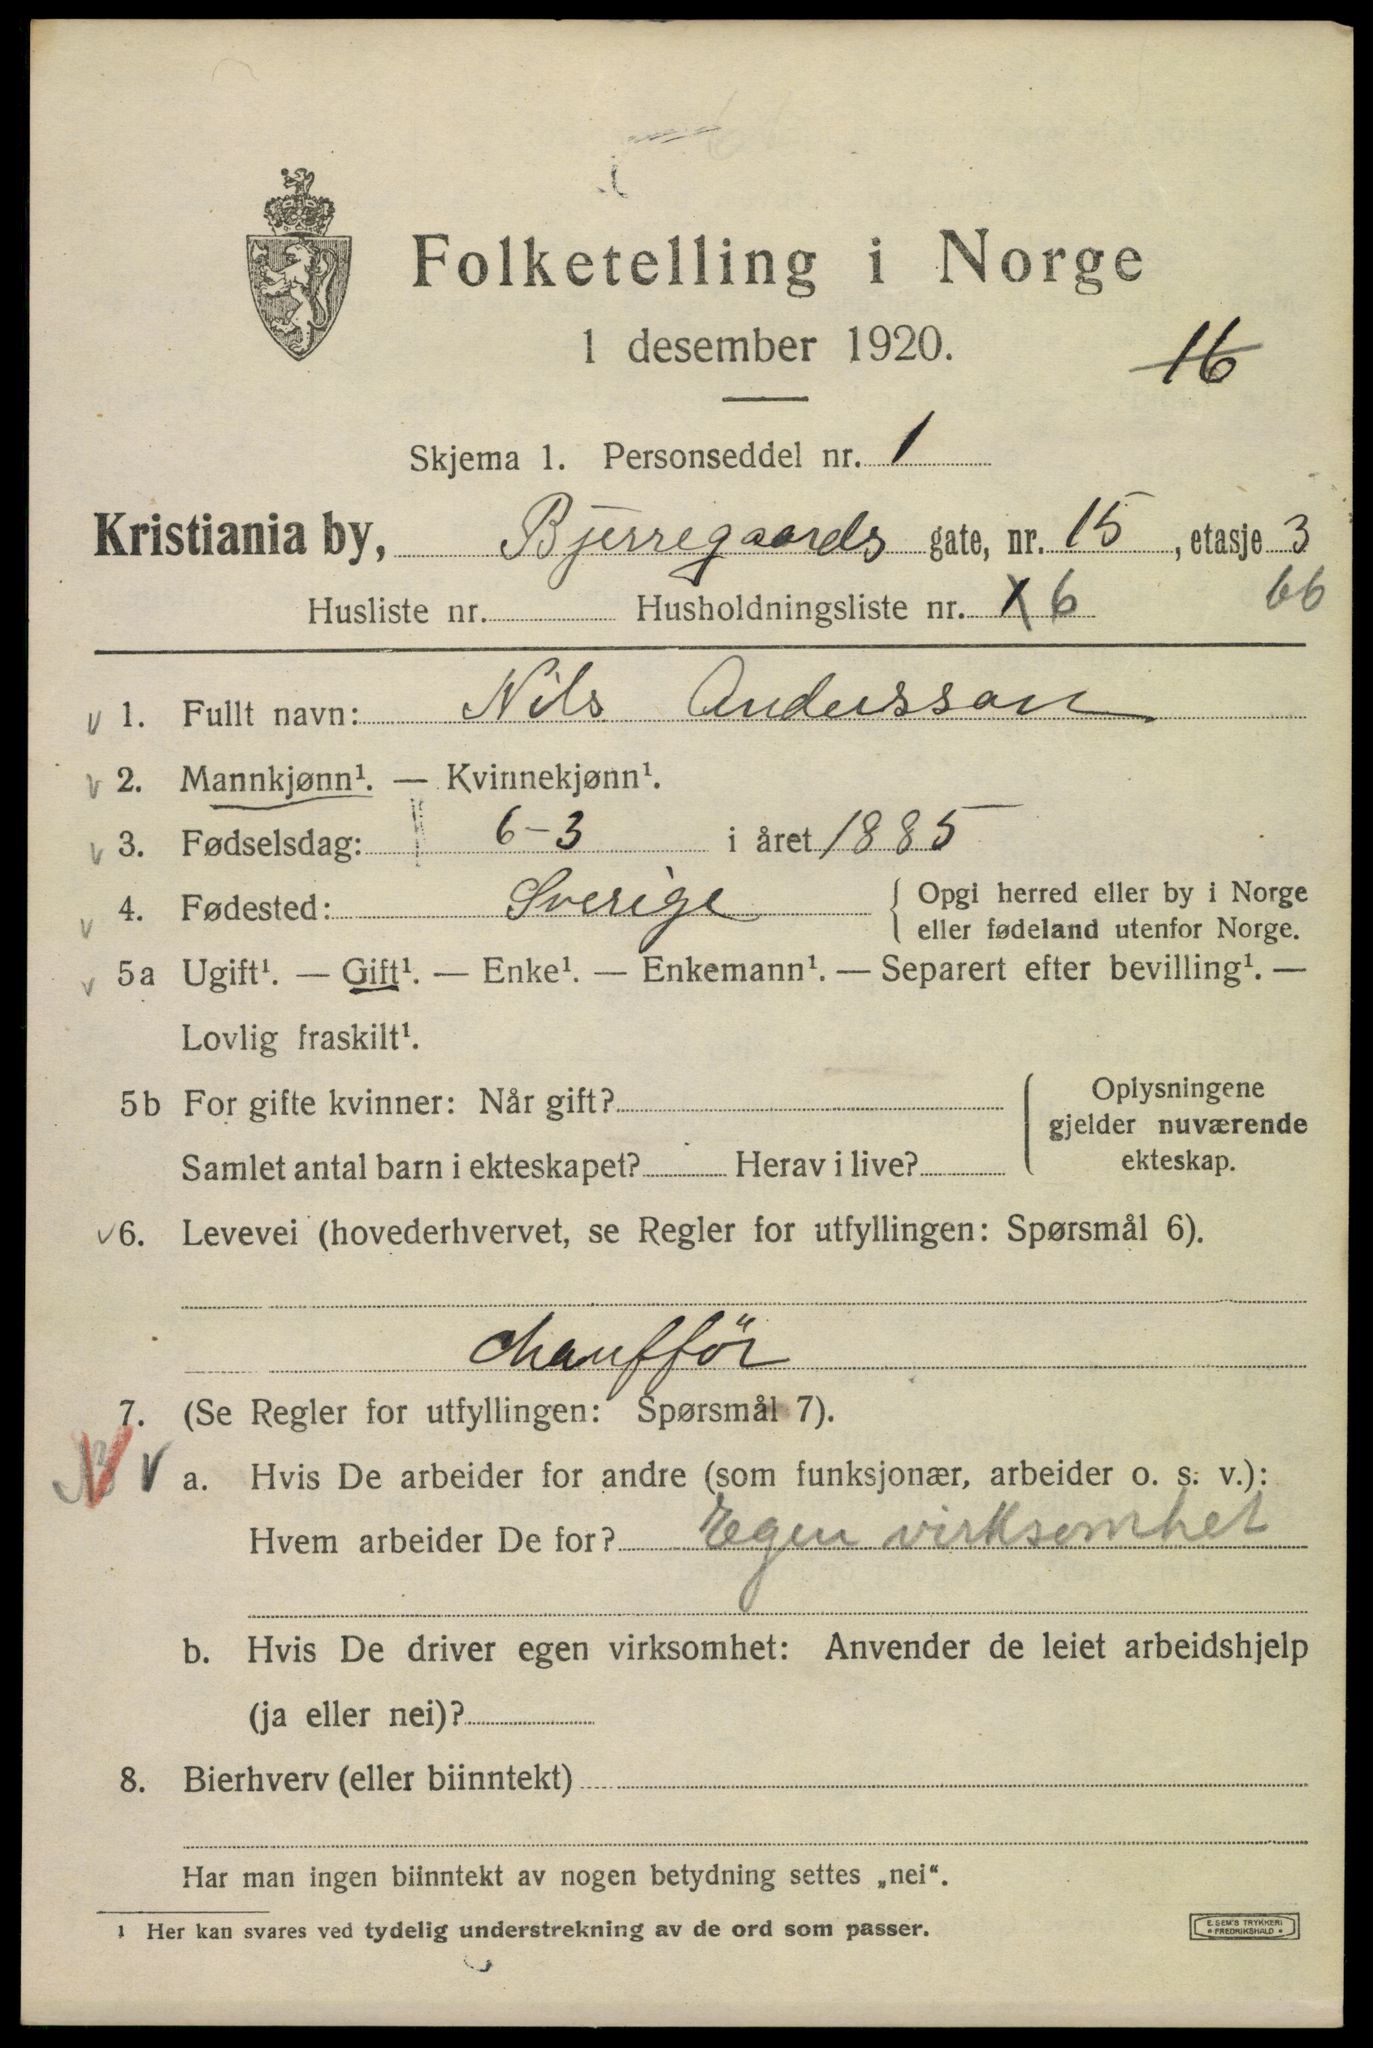 Folketelling i Norge
1 desember 1920.
16
Skjema 1. Personseddel nr. 1
Kristiania by, Bjerregaards gate, nr. 15, etasje 3
Husliste nr. Husholdningsliste nr. X 6 66
1. Fullt navn: Nils Andersson
2. Mannkjønn¹. — Kvinnekjønn¹.
3. Fødselsdag: 6-3 i året 1885
4. Fødested: Sverige { Opgi herred eller by i Norge
eller fødeland utenfor Norge.
5a Ugift¹. — Gift¹. — Enke¹. — Enkemann¹. — Separert efter bevilling¹. —
Lovlig fraskilt¹.
5b For gifte kvinner: Når gift? { Oplysningene
gjelder nuværende
Samlet antal barn i ekteskapet? Herav i live? ekteskap.
v 6. Levevei (hovederhvervet, se Regler for utfyllingen: Spørsmål 6).
chaufför
7. (Se Regler for utfyllingen: Spørsmål 7).
a. Hvis De arbeider for andre (som funksjonær, arbeider o. s. v.):
Hvem arbeider De for? Egen virksomhet
b. Hvis De driver egen virksomhet: Anvender de leiet arbeidshjelp
(ja eller nei)?
8. Bierhverv (eller biinntekt)
Har man ingen biinntekt av nogen betydning settes „nei“.
¹ Her kan svares ved tydelig understrekning av de ord som passer.
E. SEM'S TRYKKERI
FREDRIKSHALD